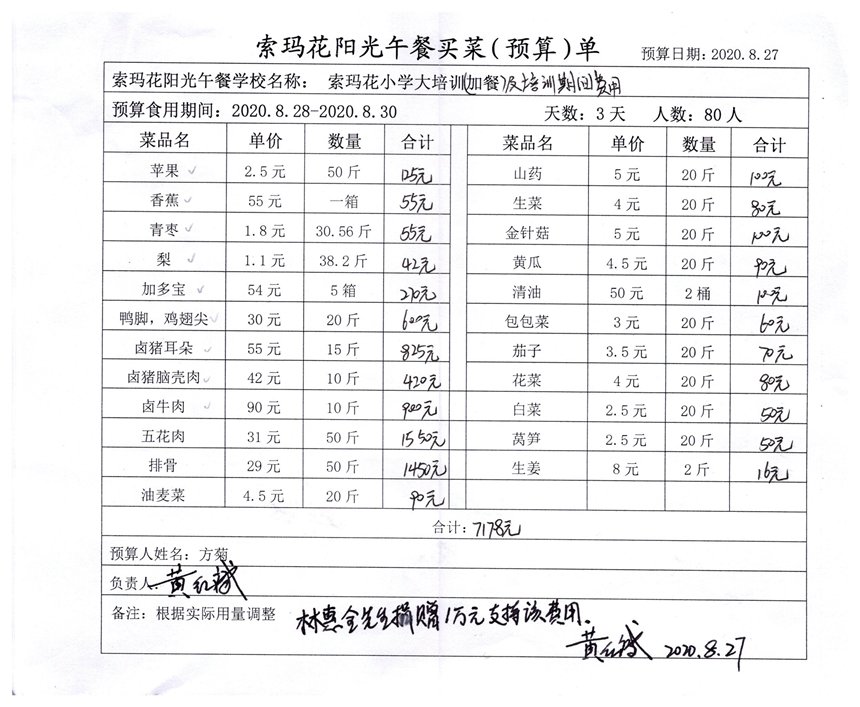 索玛花阳光午餐买菜(预算)单 预算日期:2020.8.27
索玛花阳光午餐学校名称: 索玛花小学大培训(加餐)及培训期间费用
预算食用期间:2020.8.28-2020.8.30 天数:3天 人数:80人
菜品名 单价 数量 合计 菜品名 单价 数量 合计
苹果 ✓ 2.5元 50斤 125元 山药 5元 20斤 100元
香蕉 ✓ 55元 一箱 55元 生菜 4元 20斤 80元
青枣 ✓ 1.8元 30.56斤 55元 金针菇 5元 20斤 100元
梨 ✓ 1.1元 38.2斤 42元 黄瓜 4.5元 20斤 90元
加多宝 ✓ 54元 5箱 270元 清油 50元 2桶 100元
鸭脚,鸡翅尖 ✓ 30元 20斤 600元 包包菜 3元 20斤 60元
卤猪耳朵 ✓ 55元 15斤 825元 茄子 3.5元 20斤 70元
卤猪脑壳肉 ✓ 42元 10斤 420元 花菜 4元 20斤 80元
卤牛肉 ✓ 90元 10斤 900元 白菜 2.5元 20斤 50元
五花肉 31元 50斤 1550元 莴笋 2.5元 20斤 50元
排骨 29元 50斤 1450元 生姜 8元 2斤 16元
油麦菜 4.5元 20斤 90元
合计:7178元
预算人姓名:方菊
负责人 黄红斌
备注:根据实际用量调整 林惠全先生捐赠1万元支持该费用。
黄红斌 2020.8.27